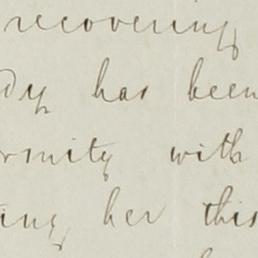 recovering
dy has been
rmity with
ing her this